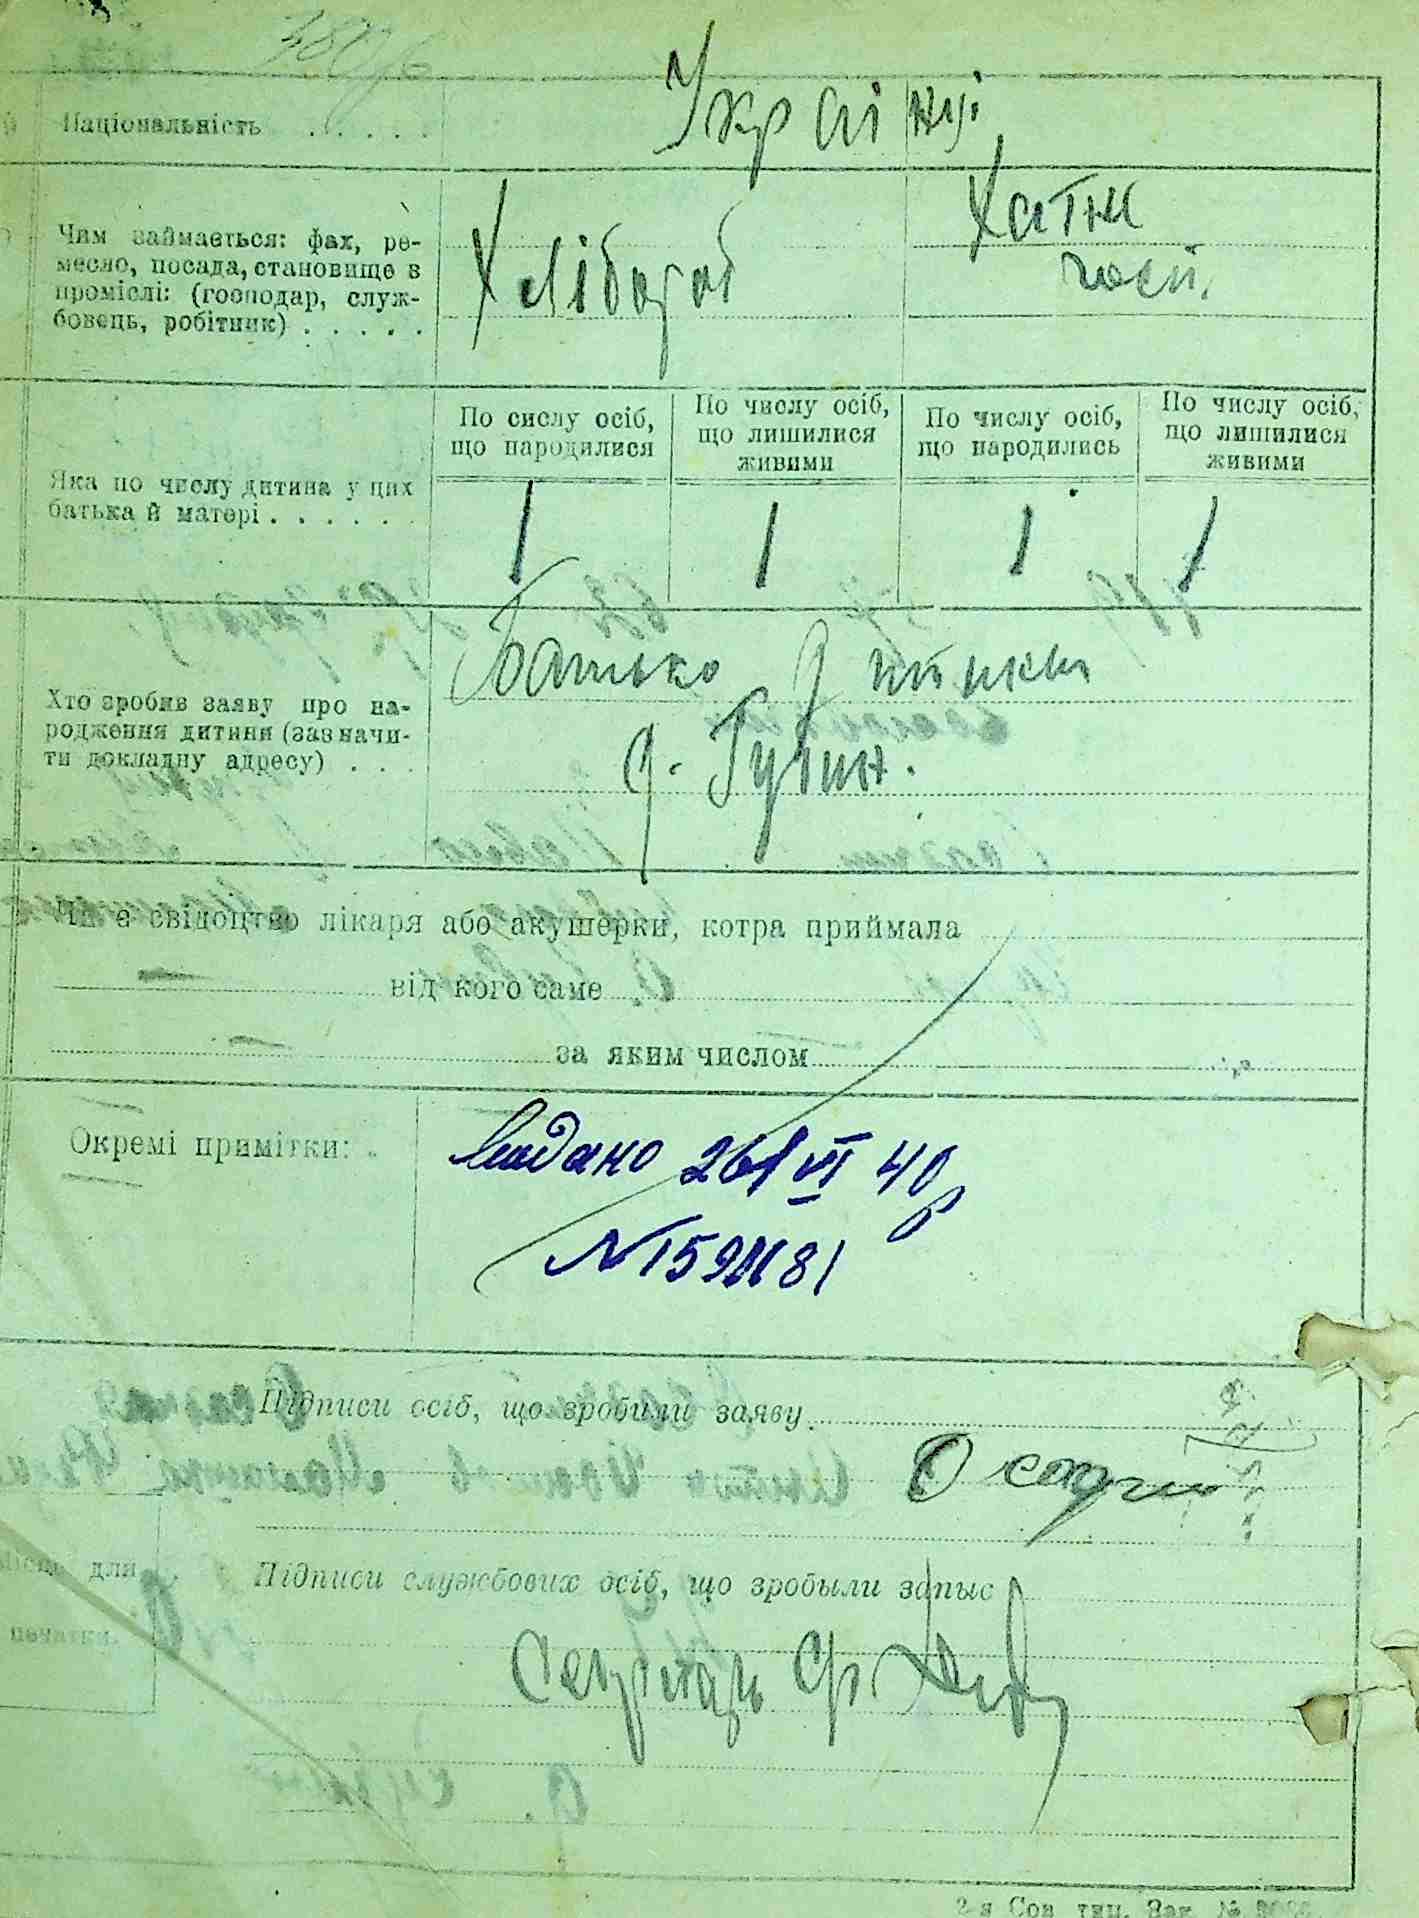 Національність . . . . . .
Українці
Чим займається: фах, ре-
месло, посада, становище в
проміслі: (господар, служ-
бовець, робітник) . . . . .
Хлібороб
Хатня
госп.
Яка по числу дитина у цих
батька й матері . . . . . .
По сислу осіб,
що народилися
По числу осіб,
що лишилися
живими
По числу осіб,
що народились
По числу осіб,
що лишилися
живими
1 1 1 1
Хто зробив заяву про на-
родження дитини (зазначи-
ти докладну адресу) . . .
Батько
с.
Чи є свідоцтво лікаря або акушерки, котра приймала
від кого саме
за яким числом
Окремі примітки:
Видано 26/VI 40р
Підписи осіб, що зробили заяву
Підписи службових осіб, що зробыли запыс
Місце для
печатки.
Секретар
2-я Сов. тип. Зак. №